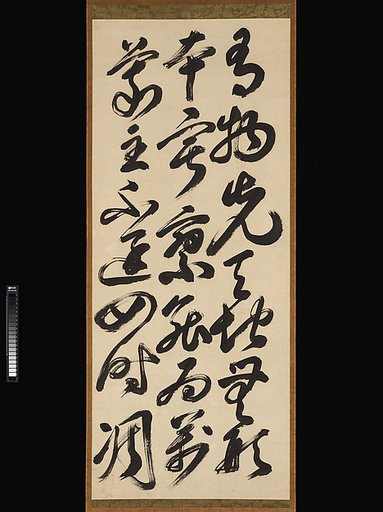 有物先天地無形
本寂寥能為萬
象主不逐四時凋